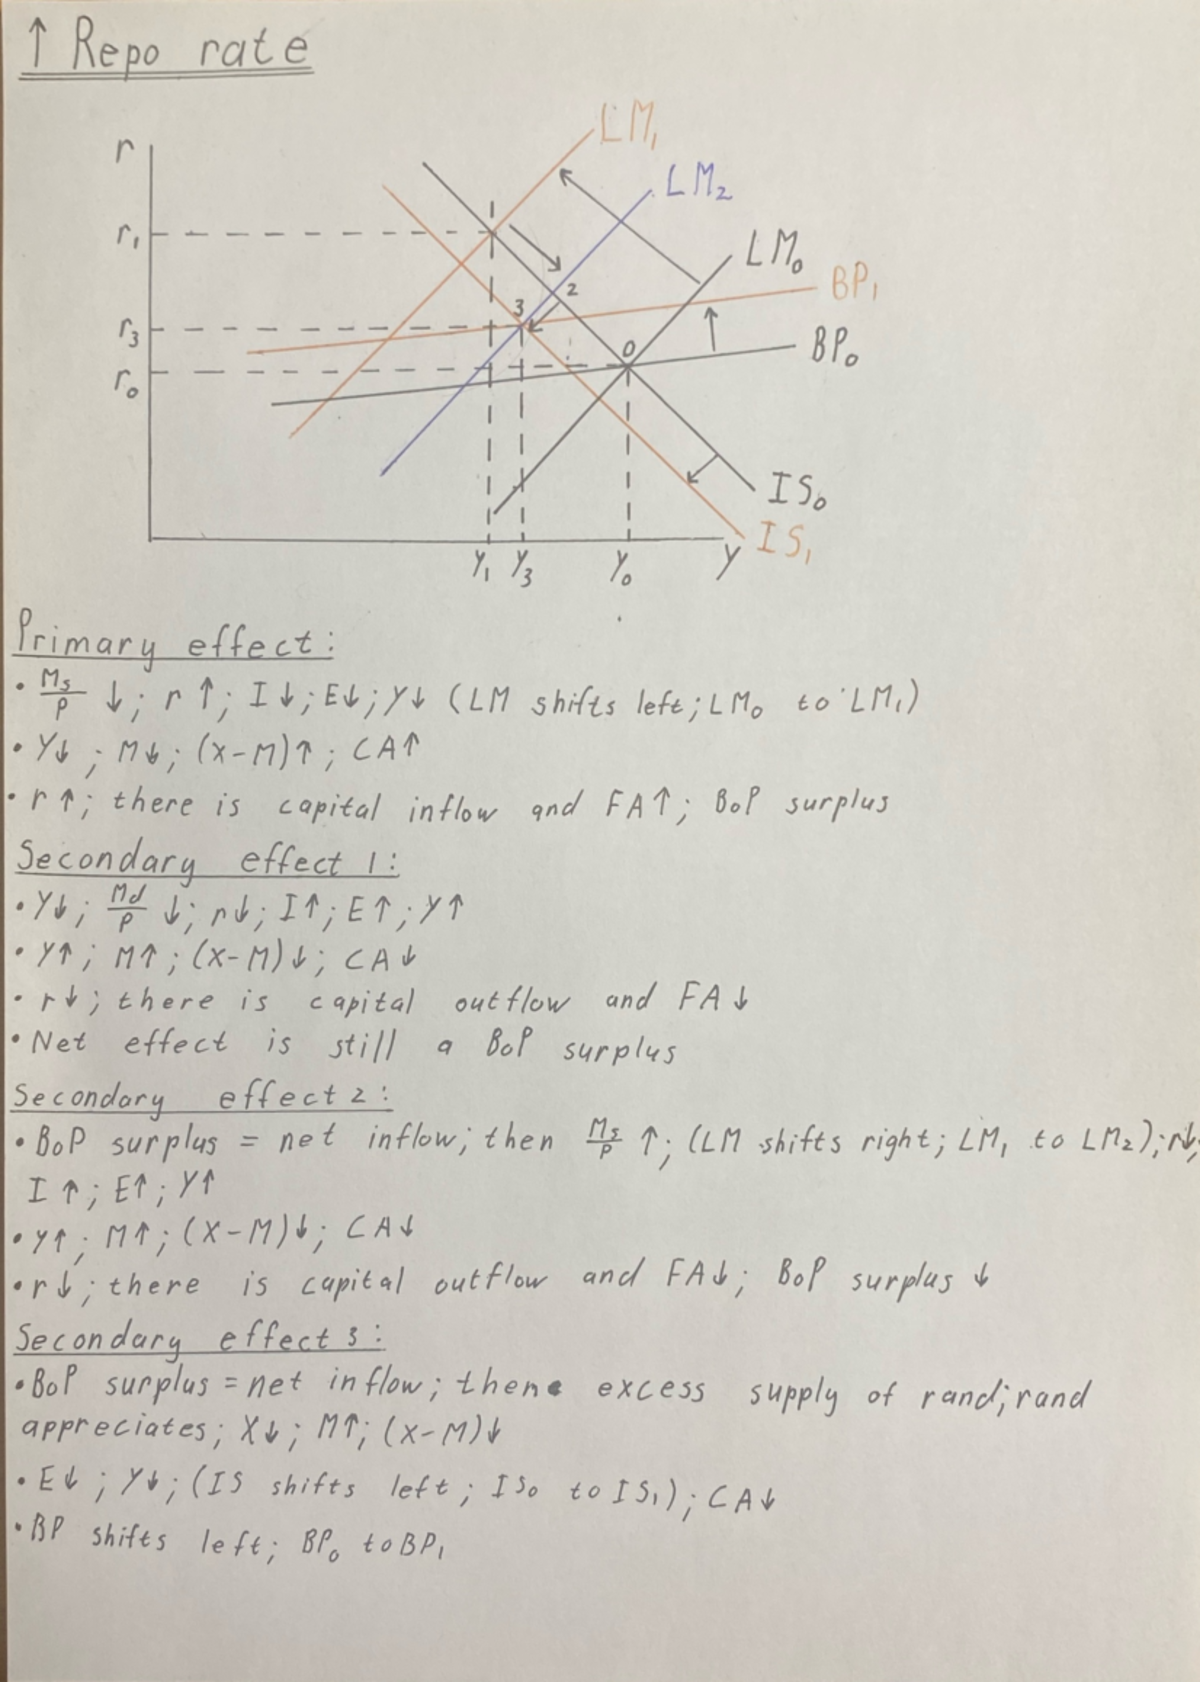 ↑ Repo rate
LM₁
r
LM₂
r₁
LM₀
BP₁
2
3
r₃
BP₀
0
r₀
IS₀
IS₁
Y₁ Y₃ Y₀ Y
Primary effect:
• Ms/P ↓; r ↑; I↓; E↓; Y↓ (LM shifts left; LM₀ to LM₁)
• Y↓; M↓; (X-M)↑; CA↑
• r↑; there is capital inflow and FA↑; BoP surplus
Secondary effect 1:
• Y↓; Md/P ↓; r↓; I↑; E↑; Y↑
• Y↑; M↑; (X-M)↓; CA↓
• r↓; there is capital outflow and FA↓
• Net effect is still a BoP surplus
Secondary effect 2:
• BoP surplus = net inflow; then Ms/P ↑; (LM shifts right; LM₁ to LM₂); r↓;
I↑; E↑; Y↑
• Y↑; M↑; (X-M)↓; CA↓
• r↓; there is capital outflow and FA↓; BoP surplus ↓
Secondary effect 3:
• BoP surplus = net inflow; then excess supply of rand; rand
appreciates; X↓; M↑; (X-M)↓
• E↓; Y↓; (IS shifts left; IS₀ to IS₁); CA↓
• BP shifts left; BP₀ to BP₁